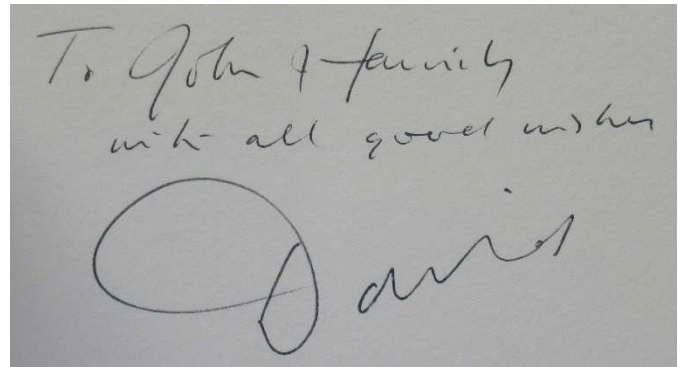 To John & Family
with all good wishes
David